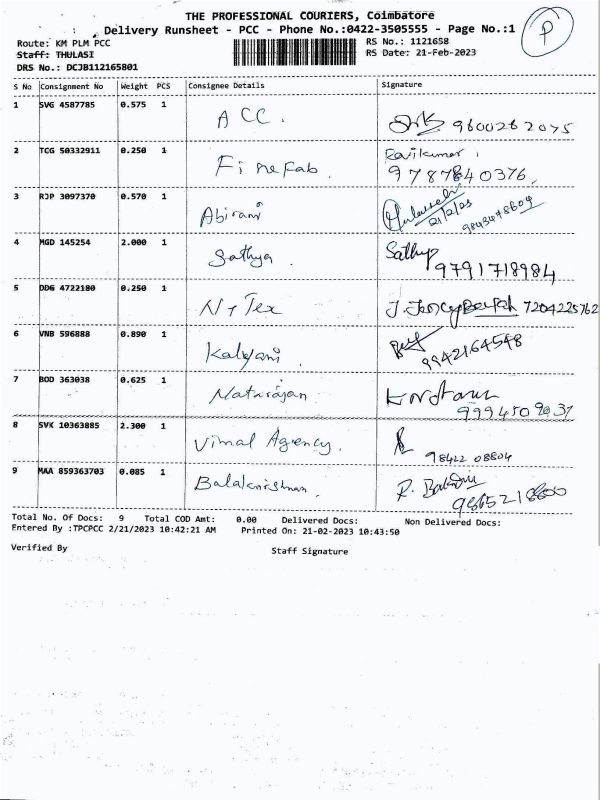 THE PROFESSIONAL COURIERS, Coimbatore
Delivery Runsheet - PCC - Phone No.:0422-3505555 - Page No.:1
P
Route: KM PLM PCC
RS No.: 1121658
Staff: THULASI
RS Date: 21-Feb-2023
DRS No.: DCJB112165801
S No Consignment No Weight PCS Consignee Details Signature
1 SVG 4587785 0.575 1 ACC. 9600262075
2 TCG 50332911 0.250 1 Finefab. Ravikumar 9787840376.
3 RJP 3097370 0.570 1 Abirami 21/2/23 9843478609
4 MGD 145254 2.000 1 Sathya. Sathya 9791718984
5 DDG 4722180 0.250 1 N + Tex 7204225762
6 VNB 596888 0.890 1 Kalyani. 9942164548
7 BOD 363038 0.625 1 Natarajan
8 SVK 10363885 2.300 1 Vimal Agency. 98422 08804
9 MAA 859363703 0.085 1 Balakrishnan. 9865218600
Total No. Of Docs: 9 Total COD Amt: 0.00 Delivered Docs: Non Delivered Docs:
Entered By :TPCPCC 2/21/2023 10:42:21 AM Printed On: 21-02-2023 10:43:50
Verified By Staff Signature